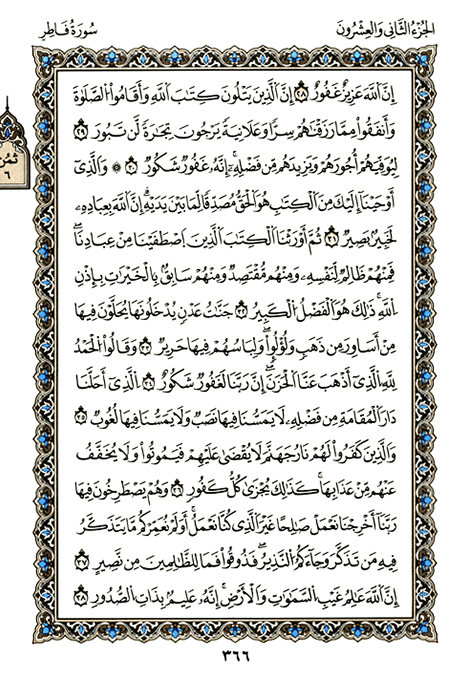 الجُزْءُ الثَّانِي وَالعِشْرُونَ سُورَةُ فَاطِرٍ
إِنَّ اَللَّهَ عَزِيزٌ غَفُورٌ ٢٨ إِنَّ اَلَّذِينَ يَتْلُونَ كِتَٰبَ اَللَّهِ وَأَقَامُواْ اُلصَّلَوٰةَ
وَأَنفَقُواْ مِمَّا رَزَقْنَٰهُمْ سِرّٗا وَعَلَانِيَةٗ يَرْجُونَ تِجَٰرَةٗ لَّن تَبُورَ ٢٩
لِيُوَفِّيَهُمْ أُجُورَهُمْ وَيَزِيدَهُم مِّن فَضْلِهِۦٓ إِنَّهُۥ غَفُورٌ شَكُورٌ ٣٠ وَاَلَّذِيٓ
أَوْحَيْنَآ إِلَيْكَ مِنَ اَلْكِتَٰبِ هُوَ اَلْحَقُّ مُصَدِّقٗا لِّمَا بَيْنَ يَدَيْهِ إِنَّ اَللَّهَ بِعِبَادِهِۦ
لَخَبِيرٌۢ بَصِيرٌ ٣١ ثُمَّ أَوْرَثْنَا اَلْكِتَٰبَ اَلَّذِينَ اَصْطَفَيْنَا مِنْ عِبَادِنَا
فَمِنْهُمْ ظَالِمٌ لِّنَفْسِهِۦ وَمِنْهُم مُّقْتَصِدٌ وَمِنْهُمْ سَابِقُۢ بِالْخَيْرَٰتِ بِإِذْنِ
اِللَّهِ ذَٰلِكَ هُوَ اَلْفَضْلُ اُلْكَبِيرُ ٣٢ جَنَّٰتُ عَدْنٖ يُدْخَلُونَهَا يُحَلَّوْنَ فِيهَا
مِنْ أَسَاوِرَ مِن ذَهَبٖ وَلُؤْلُؤٖا وَلِبَاسُهُمْ فِيهَا حَرِيرٌ ٣٣ وَقَالُواْ اُلْحَمْدُ
لِلَّهِ اِلَّذِيٓ أَذْهَبَ عَنَّا اَلْحَزَنَ إِنَّ رَبَّنَا لَغَفُورٌ شَكُورٌ ٣٤ اِلَّذِيٓ أَحَلَّنَا
دَارَ اَلْمُقَامَةِ مِن فَضْلِهِۦ لَا يَمَسُّنَا فِيهَا نَصَبٌ وَلَا يَمَسُّنَا فِيهَا لُغُوبٌ ٣٥
وَاَلَّذِينَ كَفَرُواْ لَهُمْ نَارُ جَهَنَّمَ لَا يُقْضَىٰ عَلَيْهِمْ فَيَمُوتُواْ وَلَا يُخَفَّفُ
عَنْهُم مِّنْ عَذَابِهَا كَذَٰلِكَ يُجْزَىٰ كُلُّ كَفُورٖ ٣٦ وَهُمْ يَصْطَرِخُونَ فِيهَا
رَبَّنَآ أَخْرِجْنَا نَعْمَلْ صَٰلِحًا غَيْرَ اَلَّذِي كُنَّا نَعْمَلُ أَوَلَمْ نُعَمِّرْكُم مَّا يَتَذَكَّرُ
فِيهِ مَن تَذَكَّرَ وَجَآءَكُمُ اُلنَّذِيرُ فَذُوقُواْ فَمَا لِلظَّٰلِمِينَ مِن نَّصِيرٍ ٣٧
إِنَّ اَللَّهَ عَٰلِمُ غَيْبِ اِلسَّمَٰوَٰتِ وَاَلْأَرْضِ إِنَّهُۥ عَلِيمُۢ بِذَاتِ اِلصُّدُورِ ٣٨
ثُمُن
٦
٣٦٦